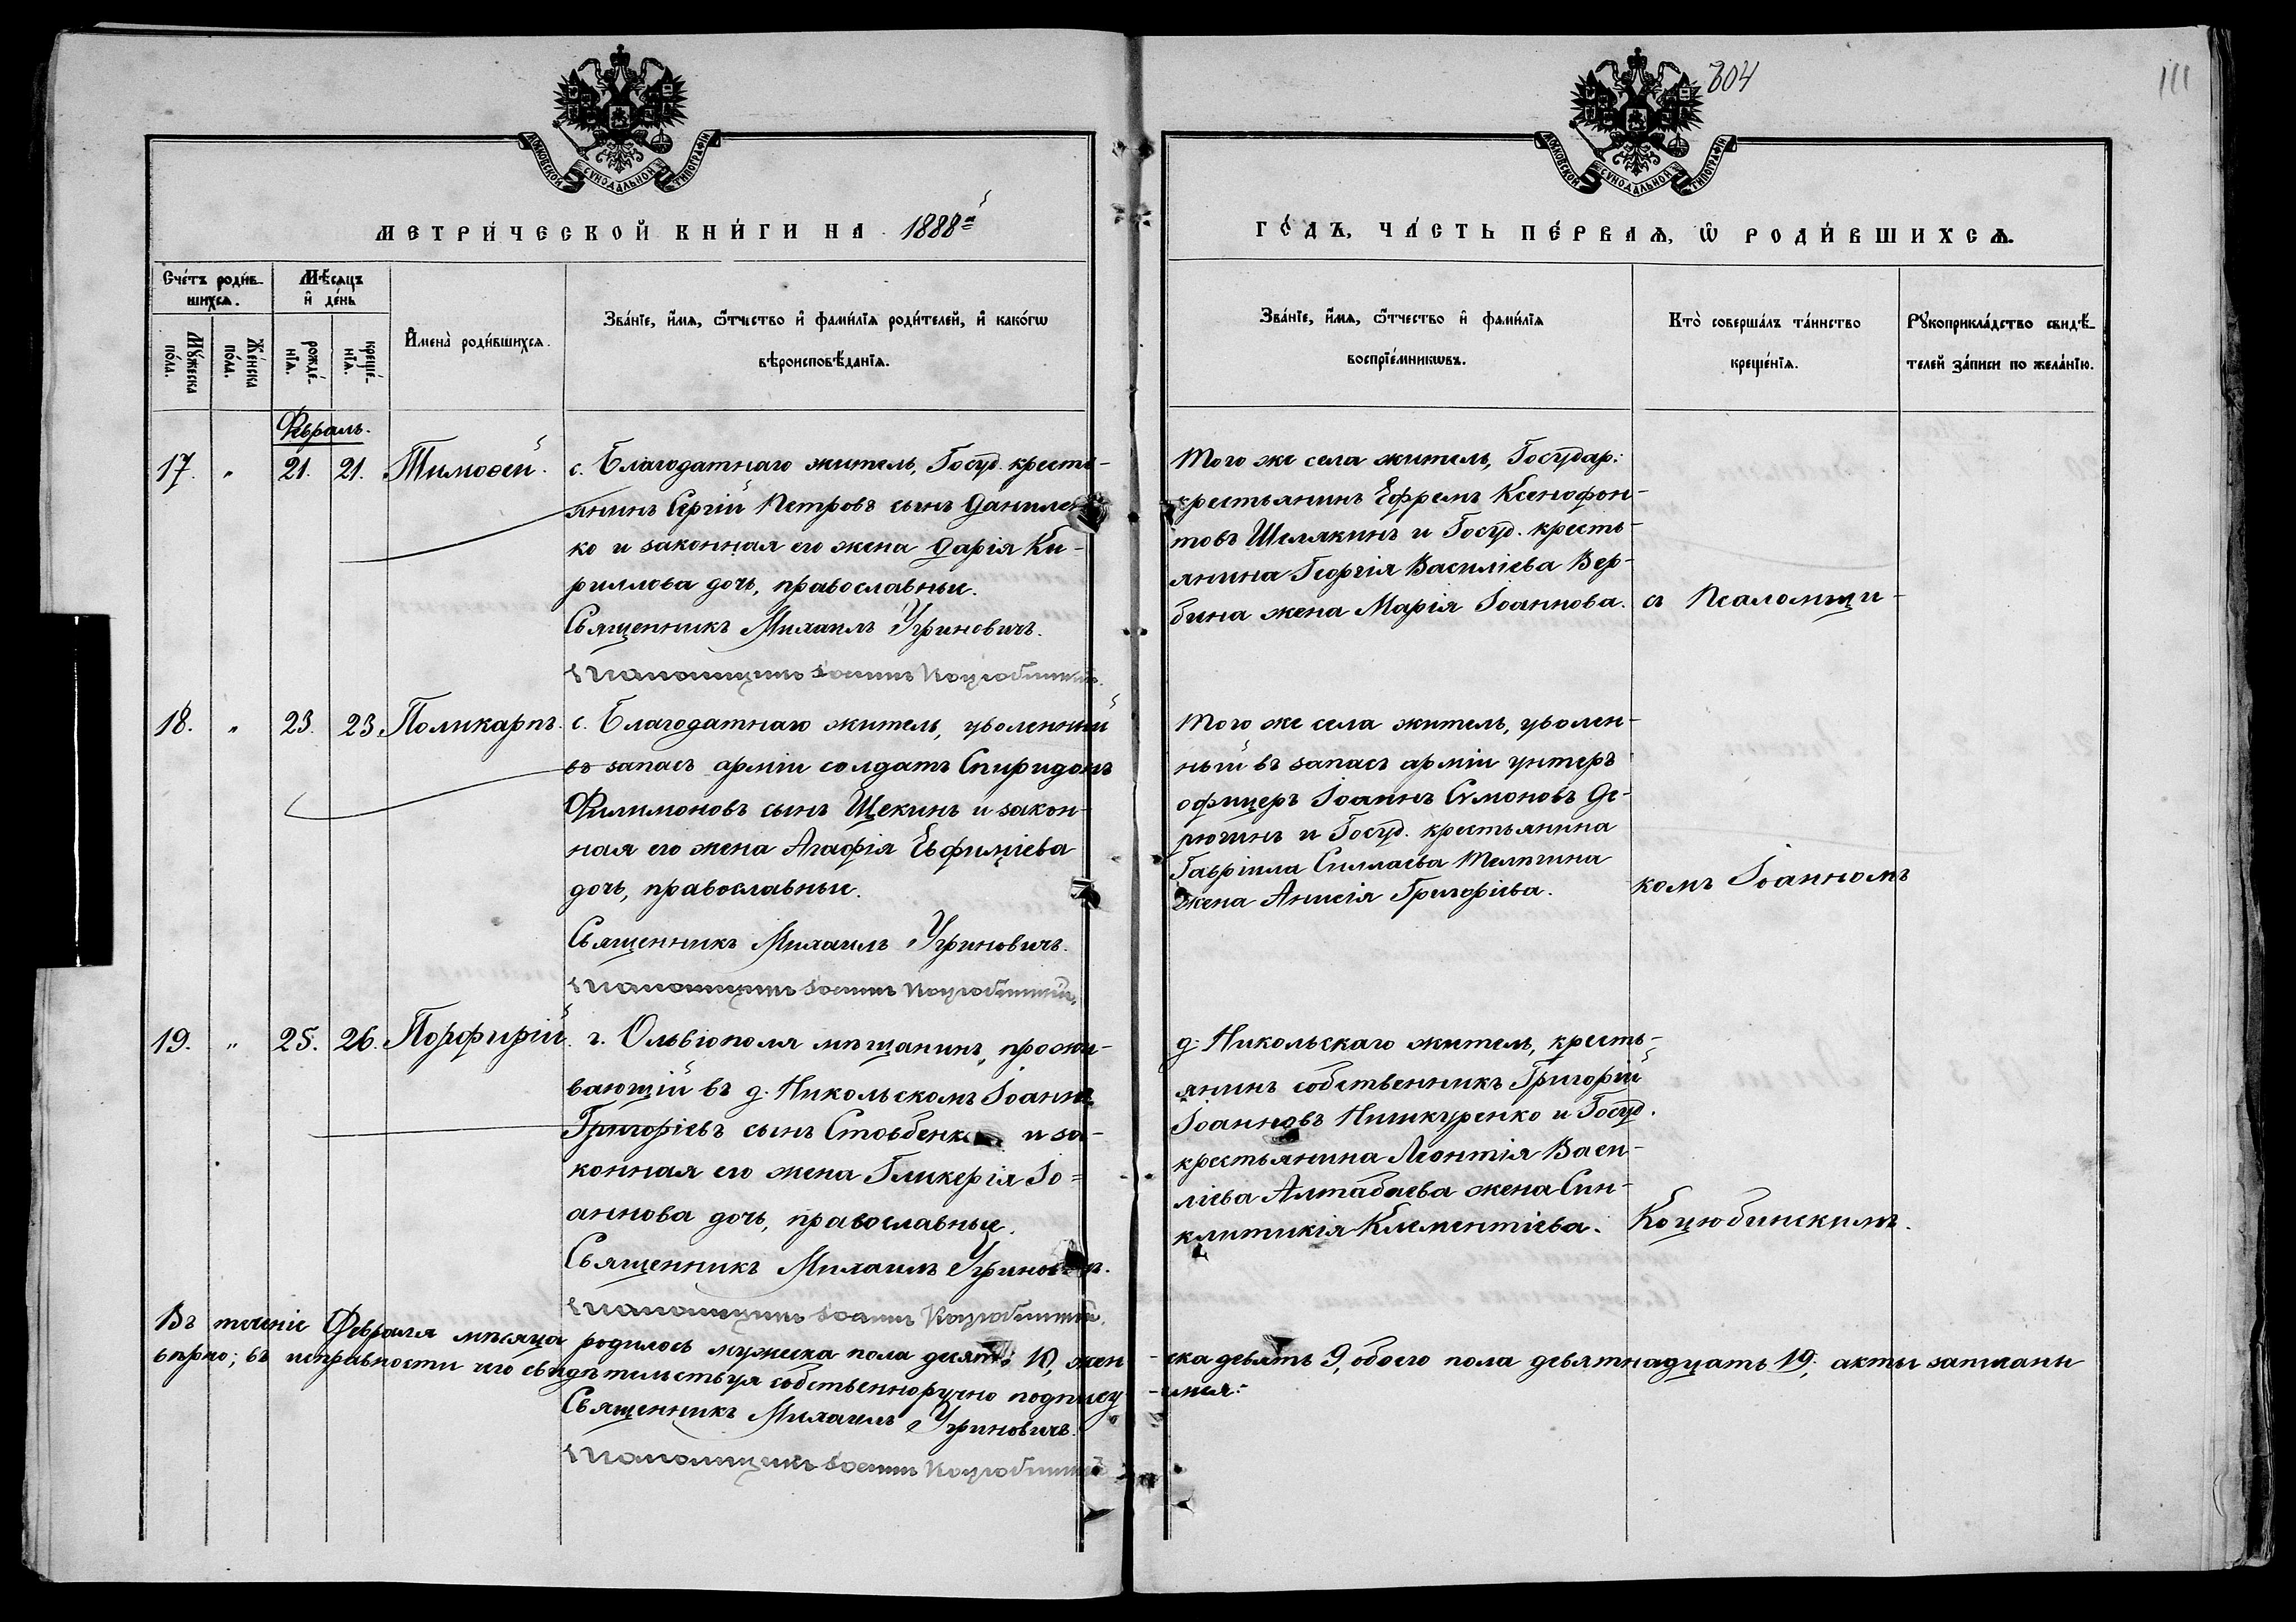 304
111
МОСКОВСКОЙ СѴНОДАЛЬНОЙ ТИПОГРАФІИ
МОСКОВСКОЙ СѴНОДАЛЬНОЙ ТИПОГРАФІИ
МЕТРИ́ЧЕСКОЙ КНИ́ГИ НА 1888й
ГО́ДЪ, ЧА́СТЬ ПЕ́РВАѦ, Ѡ҆ РОДИ́ВШИХСѦ.
Сче́тъ роди́в-
шихсѧ.
Мѣ́сѧцъ
и҆ де́нь
Мꙋ́жеска
по́ла.
Же́нска
по́ла.
рожде́-
нїѧ.
креще́-
нїѧ.
И҆мена̀ роди́вшихсѧ.
Зва́нїе, и҆́мѧ, ѻ҆́тчество и҆ фами́лїѧ роди́телей, и҆ како́гѡ
вѣроисповѣ́данїѧ.
Зва́нїе, и҆́мѧ, ѻ҆́тчество и҆ фами́лїѧ
воспрїе́мникѡвъ.
Кто̀ соверша́лъ та́инство
креще́нїѧ.
Рꙋкоприкла́дство свидѣ́-
телей за́писи по жела́нїю.
Февраль.
17. " 21. 21. Тимоѳей.
с. Благодатнаго житель, Госуд. кресть-
янинъ Сергій Петровъ сынъ Данилен-
ко и законная его жена Дарія Ки-
риллова дочь, православные.
Священникъ Михаилъ Угриновичъ.
Псаломщикъ Іоаннъ Коцюбинскій.
Того же села житель, Государ:
крестьянинъ Ефремъ Ксенофон-
товъ Шелякинъ и Госуд. кресть-
янина Георгія Василіева Вер-
бина жена Марія Іоаннова.
съ Псаломщи-
18. " 23. 23. Поликарпъ.
с. Благодатнаго житель, уволенный
въ запасъ арміи солдатъ Спиридонъ
Филимоновъ сынъ Щекинъ и закон-
ная его жена Агафія Евфиміева
дочь, православные.
Священникъ Михаилъ Угриновичъ.
Псаломщикъ Іоаннъ Коцюбинскій.
Того же села житель, уволен-
ный въ запасъ арміи унтеръ
офицеръ Іоаннъ Сѵмоновъ Де-
рюгинъ и Госуд. крестьянина
Гавріила Силлаева
жена Анисія Григоріева.
комъ Іоанномъ
19. " 25. 26. Порфирій.
г. Ольвіополя мѣщанинъ, прожи-
вающій въ д. Никольскомъ Іоаннъ
Григоріевъ сынъ Стовбенко и за-
конная его жена Гликерія Іо-
аннова дочь, православные.
Священникъ Михаилъ Угриновичъ.
Псаломщикъ Іоаннъ Коцюбинскій.
д. Никольскаго житель, кресть-
янинъ собственникъ Григорій
Іоанновъ Нишкуренко и Госуд.
крестьянина Леонтія Васи-
ліева Алтабаева жена Син-
клитикія Климентіева.
Коцюбинскимъ.
Въ теченіе Февраля мѣсяца родилось мужеска пола десять 10, жен-
ска девять 9, обоего пола девятнадцать 19; акты записаны
вѣрно; въ исправности чего свидѣтельствуя собственноручно подпису-
емся:
Священникъ Михаилъ Угриновичъ.
Псаломщикъ Іоаннъ Коцюбинскій.